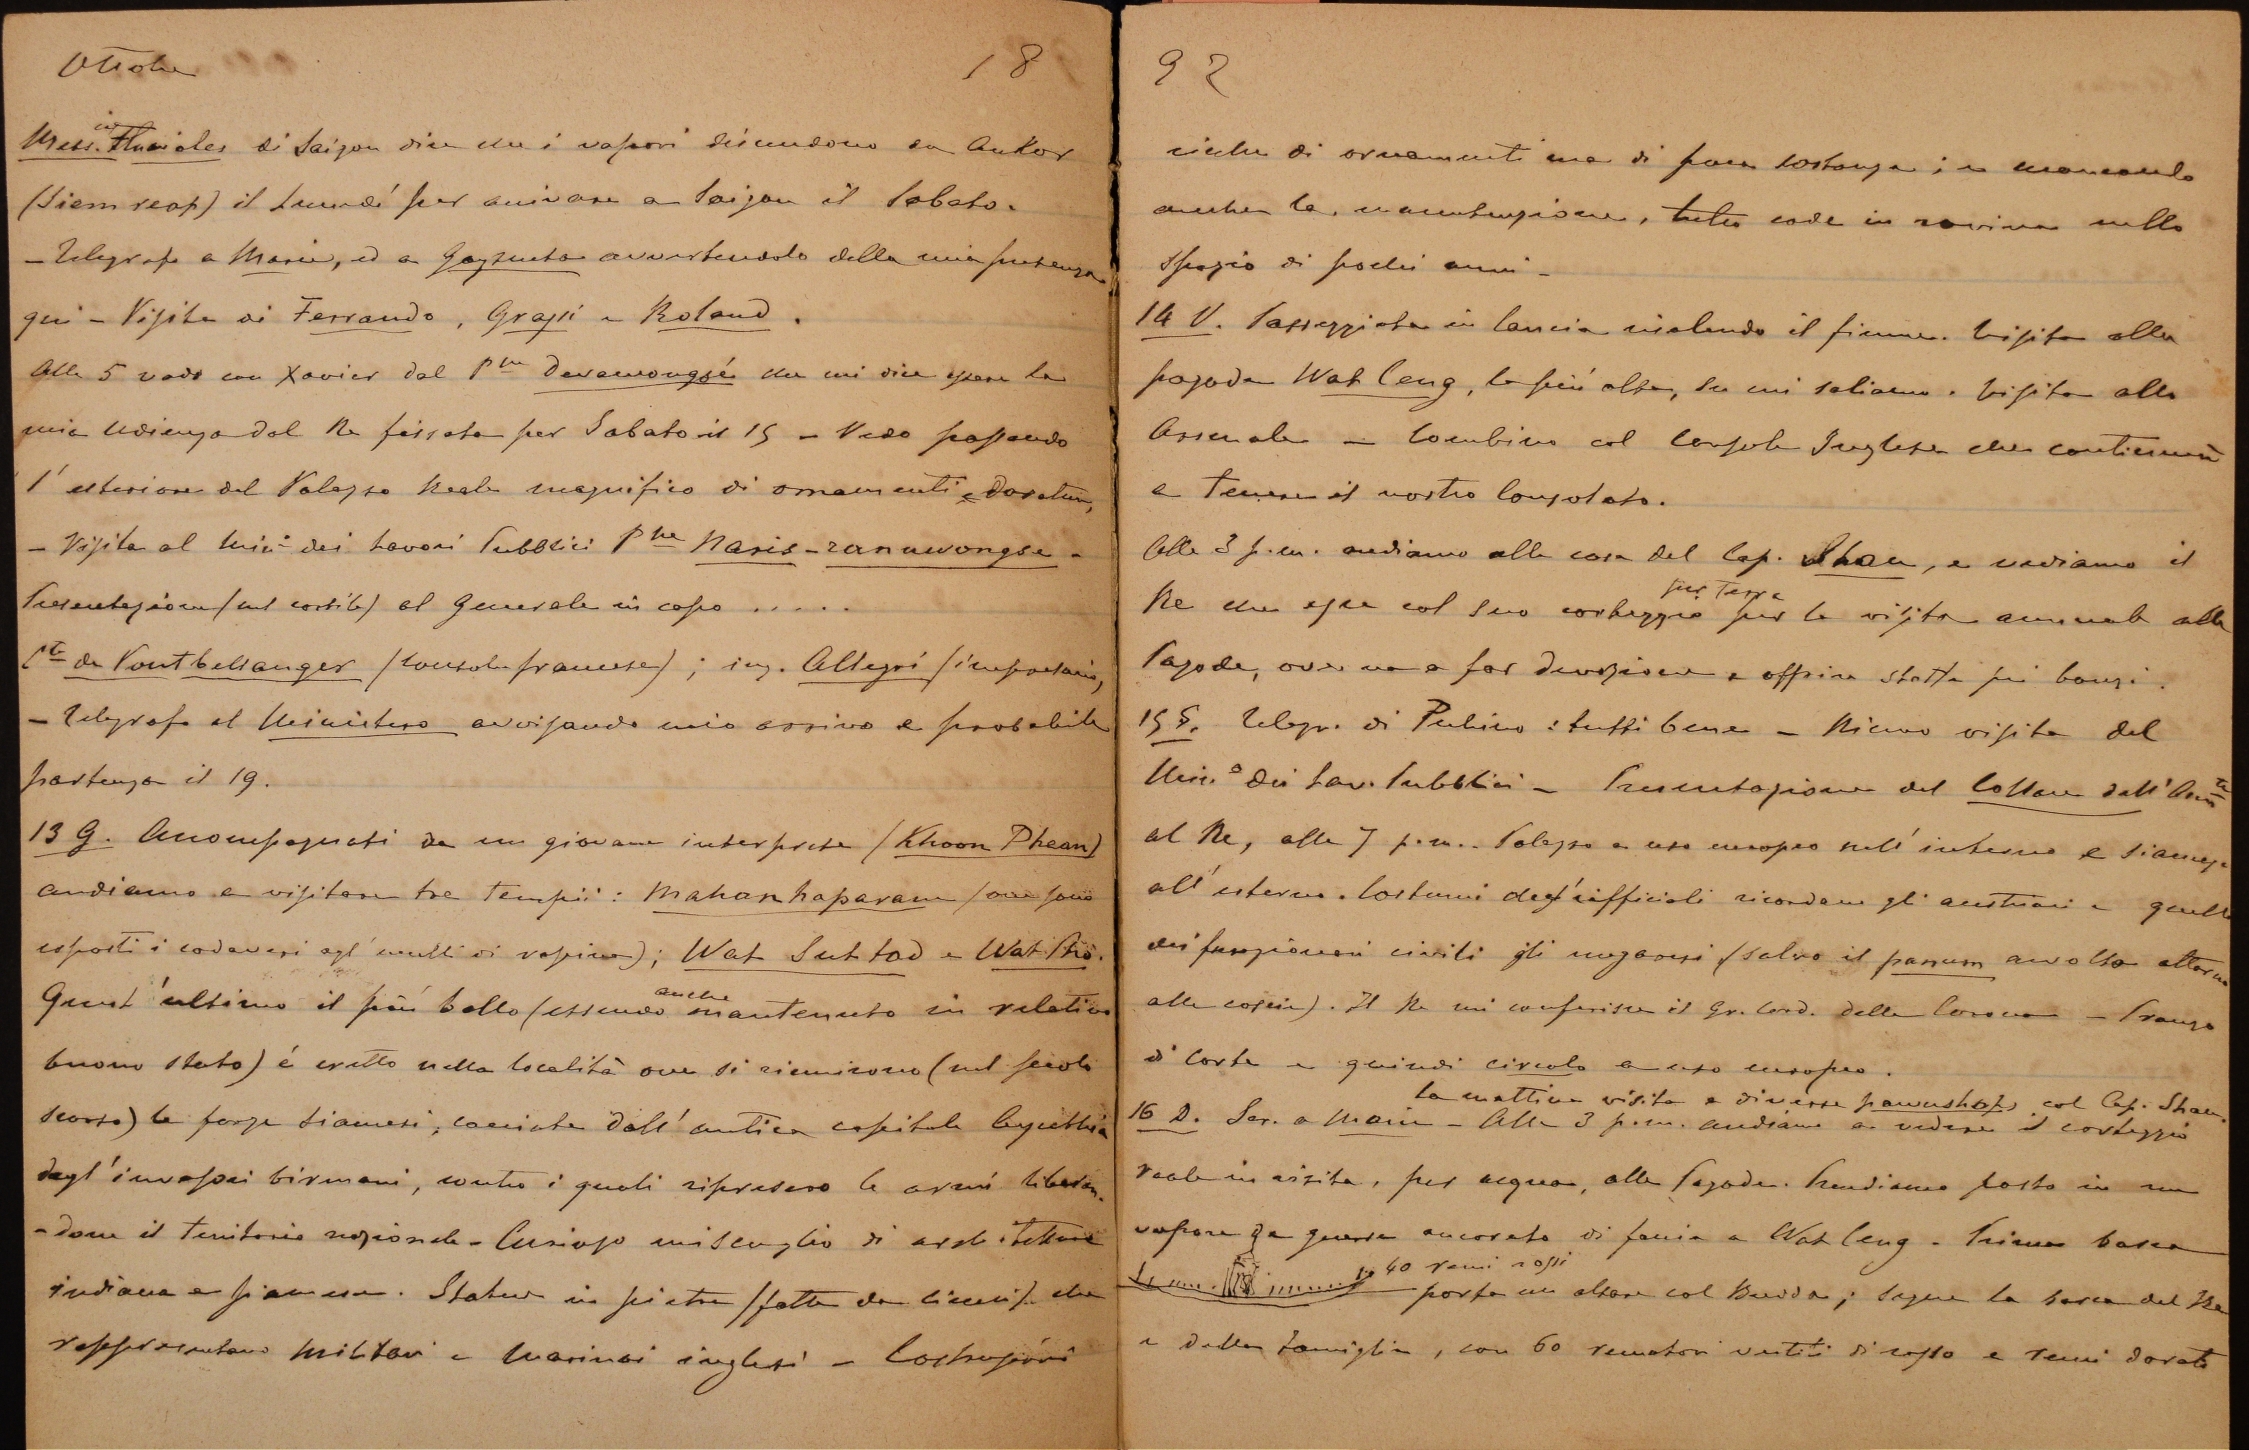 Ottobre 18
Mess. Fluviales di Saigon dice che i vapori discendono da Ankor
(Siem reap) il Lunedí per arrivare a Saigon il Sabato.
- Telegrafo a Marie, ed a Gazzuolo avvertendolo della mia presenza
qui - Visita di Ferrando, Grassi e Roland.
Alle 5 vado con Xavier dal P.pe Devawongsé che mi dice essere la
mia udienza dal Re fissata per Sabato il 15 - Vedo passando
l'esteriore del Palazzo Reale magnifico di ornamenti e dorature,
- Visita al Min.o dei Lavori Pubblici P.pe Naris-ranuwongse -
Presentazione (nel cortile) al Generale in capo .....
C.te de Pontbellanger (Console francese); ing. Allegri (impresario,
- Telegrafo al Ministero avvisando mio arrivo e probabile
partenza il 19.
13 G. Accompagnati da un giovane interprete (Khoon Phean)
andiamo a visitare tre tempii: Mahan haparam (ove sono
esposti i cadaveri agl'uccelli di rapina); Wat Suttad e Wat Pho.
Quest'ultimo il piú bello (essendo anche mantenuto in relativo
buono stato) é eretto nella località ove si riunirono (nel secolo
scorso) le forze siamesi, cacciate dall'antica capitale Ayuthia
dagl'invasori birmani, contro i quali ripresero le armi liberan-
-done il territorio nazionale - Curioso miscuglio di architetture
indiana e siamese. Statue in pietra (fatte da cinesi) che
rappresentano militari e marinai inglesi - Costruzioni
92
ricche di ornamenti ma di poca sostanza; e mancando
anche la manutenzione, tutto cade in rovina nello
spazio di pochi anni -
14 V. Passeggiata in lancia risalendo il fiume. Visita alla
pagoda Wat Ceng, la piú alta, su cui saliamo. Visita allo
Arsenale - Combino col Console Inglese che continuerà
a tenere il nostro Consolato.
Alle 3 p.m. andiamo alla casa del Cap. Shau, e vediamo il
Re che esce col suo corteggio per terra per la visita annuale alle
Pagode, ove va a far devozione e offrire stoffe pei bonzi.
15 S. Telegr. di Pulino: tutti bene - Ricevo visita del
Min.o dei Lav. Pubblici - Presentazione del Collare dell'Ann.ta
al Re, alle 7 p.m. Palazzo a uso europeo nell'interno e siamese
all'esterno. Costumi degl'ufficiali ricordano gli austriaci e quelli
dei funzionari civili gli ungaresi (salvo il panum avvolto attorno
alle coscie). Il Re mi conferisce il Gr. Cord. della Corona - Pranzo
di Corte e quindi circolo a uso europeo.
16 D. Scr. a Marie - La mattina visita a diverse pawnshops col Cap. Shau. Alle 3 p.m. andiamo a vedere il corteggio
reale in visita, per acqua, alle Pagode. Prendiamo posto in un
vapore da guerra ancorato di faccia a Wat Ceng - Prima barca
40 remi rossi porta un altare col Budda; segue la barca del Re
e della famiglia, con 60 rematori vestiti di rosso e remi dorati